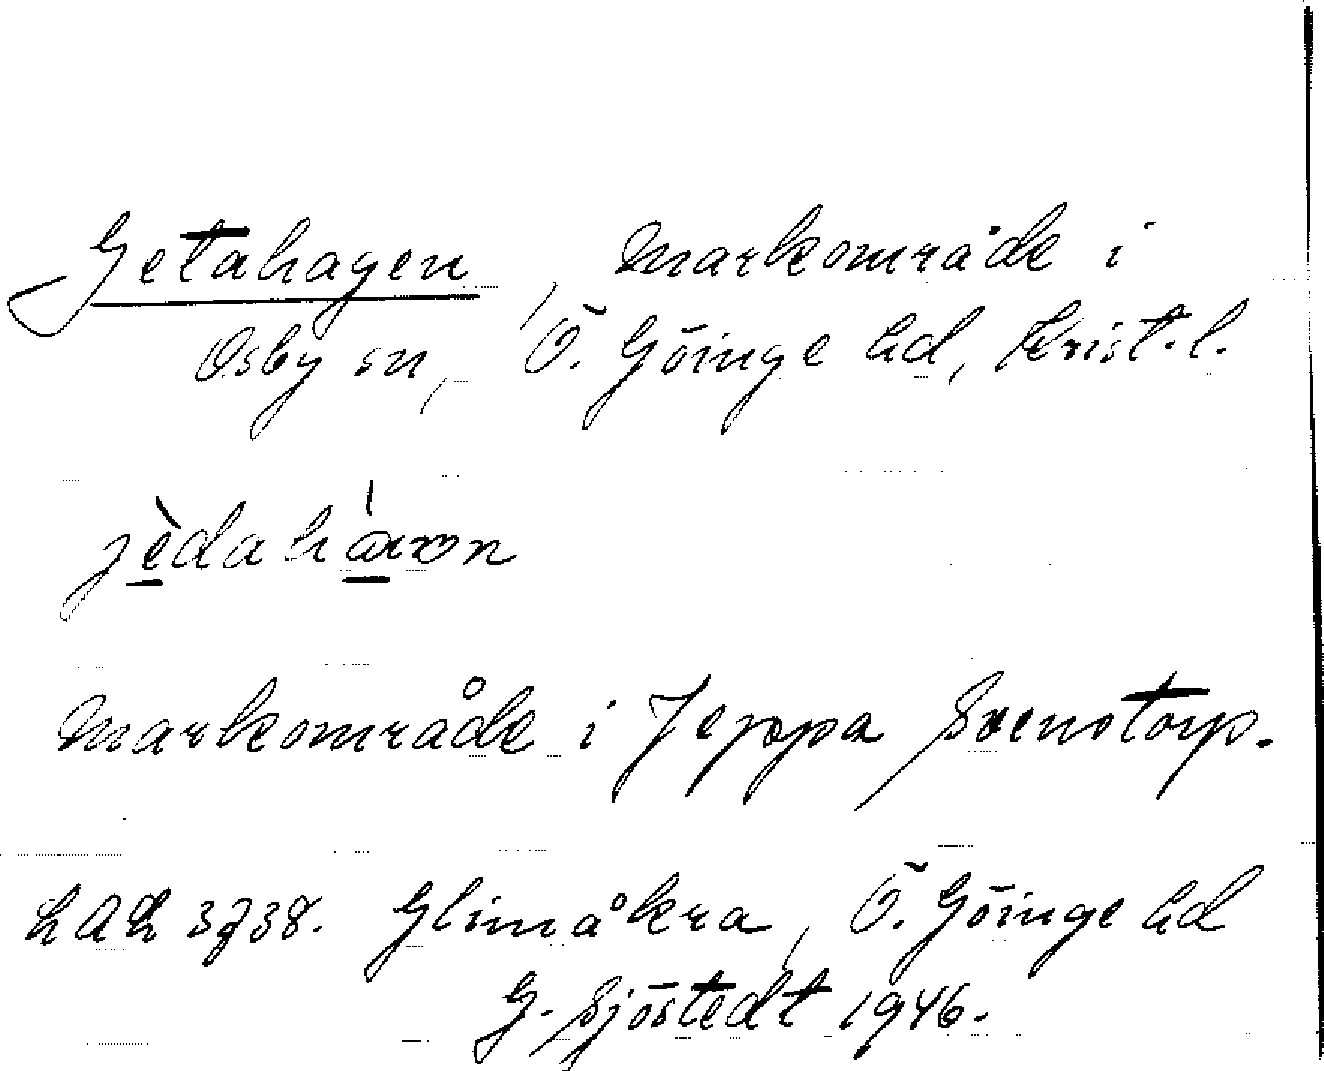 Getahagen, markområde i
Osby sn, Ö. Göinge hd, Krist. l.
markområde i Jeppa Svenstorp.
LAL 3738. Glimåkra, Ö. Göinge hd
G. Sjöstedt 1946.